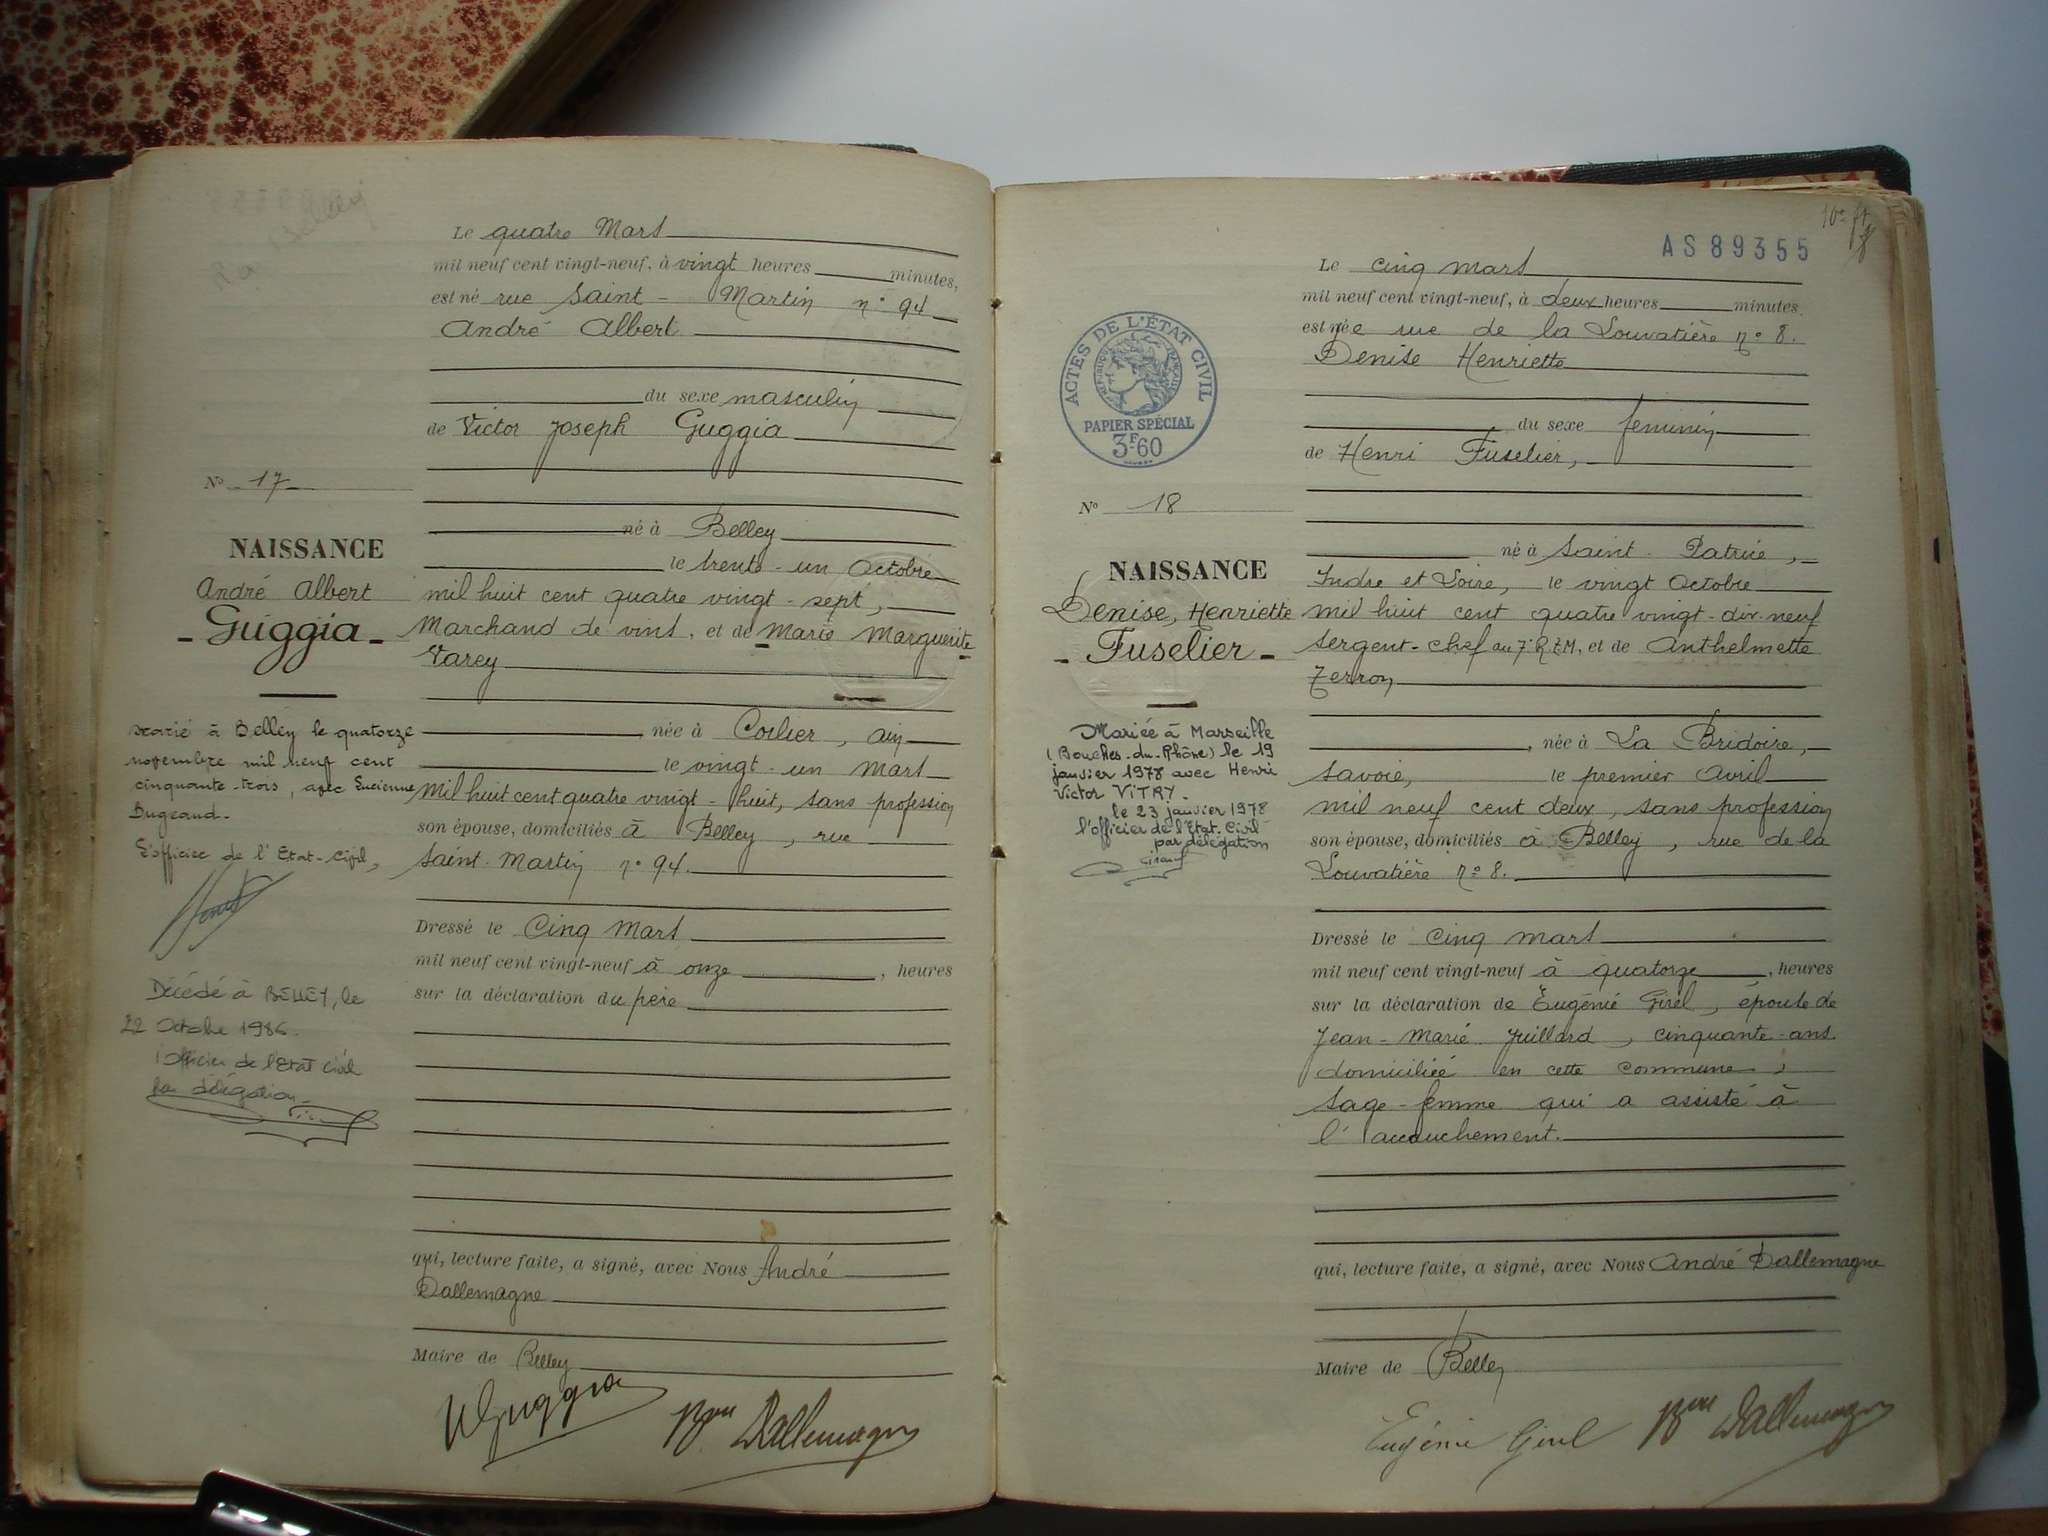 Le quatre Mars
mil neuf cent vingt-neuf, à vingt heures minutes,
est né rue Saint-Martin n° 94
André Albert
du sexe masculin
de Victor Joseph Guggia
né à Belley
le trente-un Octobre
mil huit cent quatre vingt-sept,
Marchand de vins, et de Marie Marguerite
Varey
née à Colier, ain
le vingt-un Mars
Mil huit cent quatre vingt-huit, sans profession
son épouse, domiciliés à Belley, rue
Saint-Martin n° 94.
Dressé le Cinq Mars
mil neuf cent vingt-neuf à onze, heures
sur la déclaration du père
qui, lecture faite, a signé, avec Nous André
Dallemagne
Maire de Belley
VGuggia Bon Dallemagne
N° 17
NAISSANCE
André Albert
- Guggia -
marié à Belley le quatorze
novembre mil neuf cent
cinquante-trois, avec Lucienne
Dugeaud.
L'officier de l'Etat-Civil,
Décédé à BELLEY, le
22 Octobre 1986.
l'Officier de l'Etat Civil
par délégation
AS89355
Le cinq mars
mil neuf cent vingt-neuf, à deux heures minutes
est née rue de la Louvatière n° 8.
Denise Henriette
du sexe feminin
de Henri Fuselier,
né à Saint-Patrice,
Indre et Loire, le vingt Octobre
mil huit cent quatre vingt-dix-neuf
sergent-chef au 7° R.T.M, et de Anthelmette
Terron
, née à La Bridoire,
Savoie, le premier Avril
mil neuf cent deux, sans profession
son épouse, domiciliés à Belley, rue de la
Louvatière n° 8.
Dressé le cinq mars
mil neuf cent vingt-neuf à quatorze, heures
sur la déclaration de Eugénie Girel, épouse de
Jean-Marie Juillard, cinquante ans
domiciliée en cette commune,
sage-femme qui a assisté à
l'accouchement.
qui, lecture faite, a signé, avec Nous André Dallemagne
Maire de Belley
Eugénie Girel Bon Dallemagne
ACTES DE L'ÉTAT CIVIL
RÉPUBLIQUE FRANÇAISE
PAPIER SPÉCIAL
3F60
N° 18
NAISSANCE
Denise, Henriette
- Fuselier -
Mariée à Marseille
(Bouches-du-Rhône) le 19
janvier 1978 avec Henri
Victor VITRY.
le 23 janvier 1978
l'officier de l'Etat-Civil
par délégation